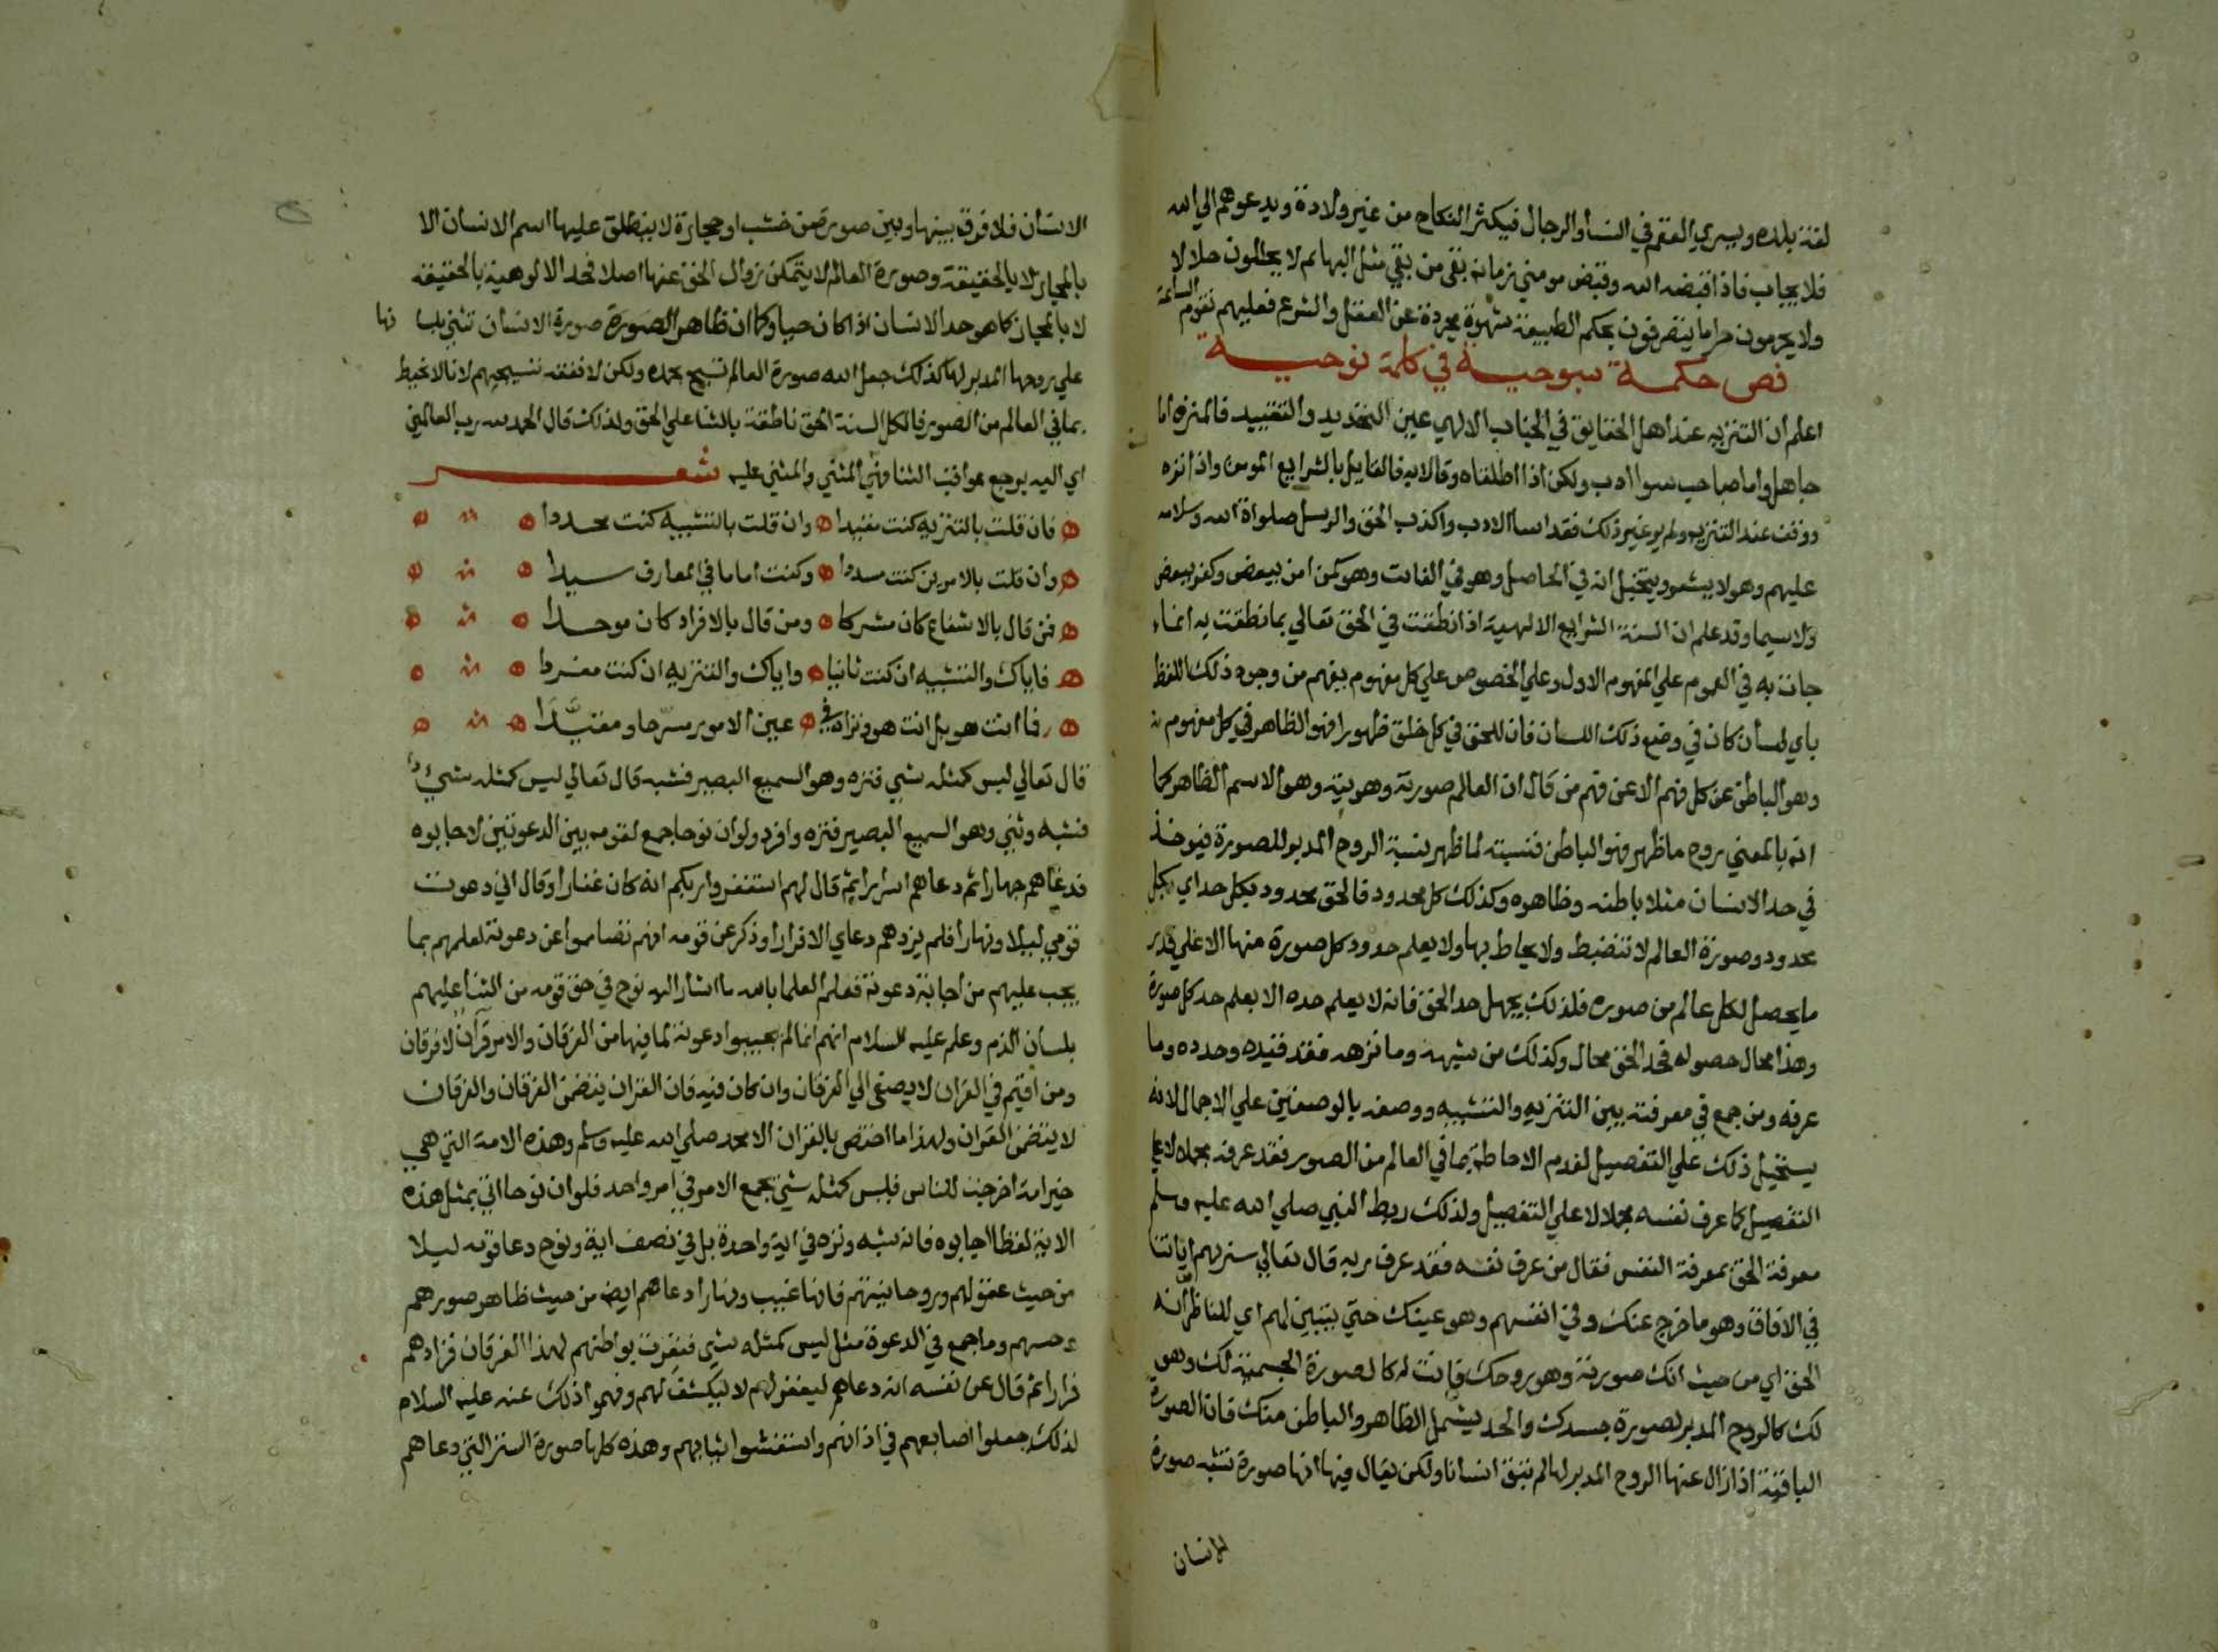 لغة بلده ويسري العقم في النسأ والرجال فيكثر النكاح من غير ولادة ويدعوهم الي الله
فلا يجاب فاذا قبضه الله وقبض مومني زمانه بقي من بقي مثل البهايم لا يحلون حلالا
ولا يحرمون حراما يتصرفون بحكم الطبيعة شهوة مجردة عن العقل والشرع فعليهم تقوم الساعة
فص حكمة سبوحية في كلمة نوحية
اعلم ان التنزيه عند اهل الحقايق في الجناب الالهي عين التحديد والتقييد فالمنزه اما
جاهل واما صاحب سوا ادب ولكن اذا اطلقاه وقالا به فالقايل بالشرايع المومن واذا نزه
ووقف عند التنزيه ولم ير غير ذلك فقد اسأ الادب واكذب الحق والرسل صلواة الله وسلامه
عليهم وهو لا يشعر ويتخيل انه في الحاصل وهو في الفايت وهو كمن امن ببعض وكفر ببعض
ولا سيما وقد علم ان السنة الشرايع الالهية اذا نطقت في الحق تعالي بما نطقت به انما
جات به في العموم علي المفهوم الاول وعلي الخصوص علي كل مفهوم يفهم من وجوه ذلك اللفظ
باي لسان كان في وضع ذلك اللسان فان للحق في كل خلق ظهورا فهو الظاهر في كل مفهوم
وهو الباطن عن كل فهم الا عن فهم من قال ان العالم صورته وهويته وهو الاسم الظاهر كما
انه بالمعني روح ما ظهر فهو الباطن فنسبته لما ظهر نسبة الروح المدبر للصورة فيوخذ
في حد الانسان مثلا باطنه وظاهره وكذلك كل محدود فالحق محدود بكل حد اي بكل
محدود وصورة العالم لا تنضبط ولا يحاط بها ولا يعلم حدود كل صورة منها الا علي قدر
ما يحصل لكل عالم من صوره فلذلك يجهل حد الحق فانه لا يعلم حده الا بعلم حد كل صورة
وهذا محال حصوله فحد الحق محال وكذلك من شبهه وما نزهه فقد قيده وحدده وما
عرفه ومن جمع في معرفته بين التنزيه والتشبيه ووصفه بالوصفين علي الاجمال لانه
يستحيل ذلك علي التفصيل لعدم الاحاطة بما في العالم من الصور فقد عرفه مجملا لا علي
التفصيل كما عرف نفسه مجملا لا علي التفصيل ولذلك ربط النبي صلي الله عليه وسلم
معرفة الحق بمعرفة النفس فقال من عرف نفسه فقد عرف ربه قال تعالي سنريهم اياتنا
في الافاق وهو ما خرج عنك وفي انفسهم وهو عينك حتي يتبين لهم اي للناظر انه
الحق اي من حيث انك صورته وهو روحك فانت له كالصورة الجسمية لك وهو
لك كالروح المدبر لصورة جسدك والحد يشمل الظاهر والباطن منك فان الصورة
الباقية اذا زال عنها الروح المدبر لها لم تبق انسانا ولكن يقال فيها انها صورة تشبه صورة
الانسان
الانسان فلا فرق بينها وبين صورة من خشب او حجارة لا ينطلق عليها اسم الانسان الا
بالمجاز لا بالحقيقة وصورة العالم لا يتمكن زوال الحق عنها اصلا فحد الالوهية بالحقيقة
لا بالمجاز كما هو حد الانسان اذا كان حيا وكما ان ظاهر الصورة صورة الانسان تثني بلسانها
علي روحها المدبر لها كذلك جعل الله صورة العالم تسبح بحمده ولكن لا نفقه تسبيحهم لانا لا نحيط
بما في العالم من الصور فالكل السنة الحق ناطقة بالثنا علي الحق ولذلك قال الحمد لله رب العالمين
اي اليه يرجع عواقب الثنا فهو المثني والمثني عليه شعر
فان قلت بالتنزيه كنت مقيدا وان قلت بالتشبيه كنت محددا
وان قلت بالامرين كنت مسددا وكنت اماما في المعارف سيدا
فمن قال بالاشفاع كان مشركا ومن قال بالافراد كان موحدا
فاياك والتشبيه ان كنت ثانيا واياك والتنزيه ان كنت مفردا
فما انت هو بل انت هو وتراه في عين الامور مسرحا ومقيدا
قال تعالي ليس كمثله شي فنزه وهو السميع البصير فشبه قال تعالي ليس كمثله شيء
فشبه وثني وهو السميع البصير فنزه وافرد ولو ان نوحا جمع لقومه بين الدعوتين لاجابوه
فدعاهم جهارا ثم دعاهم اسرارا ثم قال لهم استغفروا ربكم انه كان غفارا وقال اني دعوت
قومي ليلا ونهارا فلم يزدهم دعاي الا فرارا وذكر عن قومه انهم تصامموا عن دعوته لعلمهم بما
يجب عليهم من اجابة دعوته فعلم العلما بالله ما اشار اليه نوح في حق قومه من الثنأ عليهم
بلسان الذم وعلم عليه السلام انهم انما لم يجيبوا دعوته لما فيها من الفرقان والامر قرآن لا فرقان
ومن اقيم في القران لا يصغي الي الفرقان وان كان فيه فان القران يتضمن الفرقان والفرقان
لا يتضمن القران ولهذا ما اختص بالقران الا محمد صلي الله عليه وسلم وهذه الامة التي هي
خير امة اخرجت للناس فليس كمثله شي يجمع الامر في امر واحد فلو ان نوحا اتي بمثل هذه
الاية لفظا اجابوه فانه شبه ونزه في اية واحدة بل في نصف اية ونوح دعا قومه ليلا
من حيث عقولهم وروحانيتهم فانها غيب ونهارا دعاهم ايضا من حيث ظاهر صورهم
وحسهم وما جمع في الدعوة مثل ليس كمثله شي فنفرت بواطنهم لهذا الفرقان فزادهم
فرارا ثم قال عن نفسه انه دعاهم ليغفر لهم لا ليكشف لهم وفهموا ذلك عنه عليه السلام
لذلك جعلوا اصابعهم في اذانهم واستغشوا ثيابهم وهذه كلها صورة الستر التي دعاهم